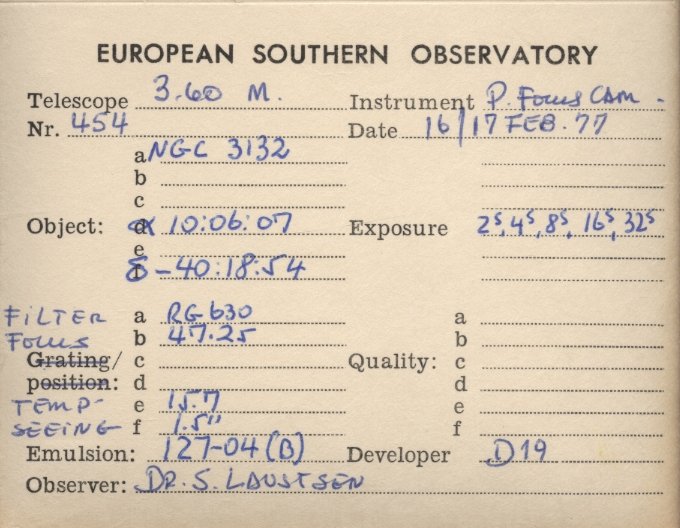 EUROPEAN SOUTHERN OBSERVATORY
Telescope 3.60 M. Instrument P. Focus CAM.
Nr. 454 Date 16/17 FEB. 77
a NGC 3132
b
c
Object: d α 10:06:07 Exposure 2s, 4s, 8s, 16s, 32s
e
f δ -40:18:54
FILTER a RG630 a
Focus b 47.25 b
Grating/ c Quality: c
position: d d
TEMP- e 15.7 e
SEEING- f 1.5" f
Emulsion: 127-04 (B) Developer D19
Observer: DR. S. LAUSTSEN